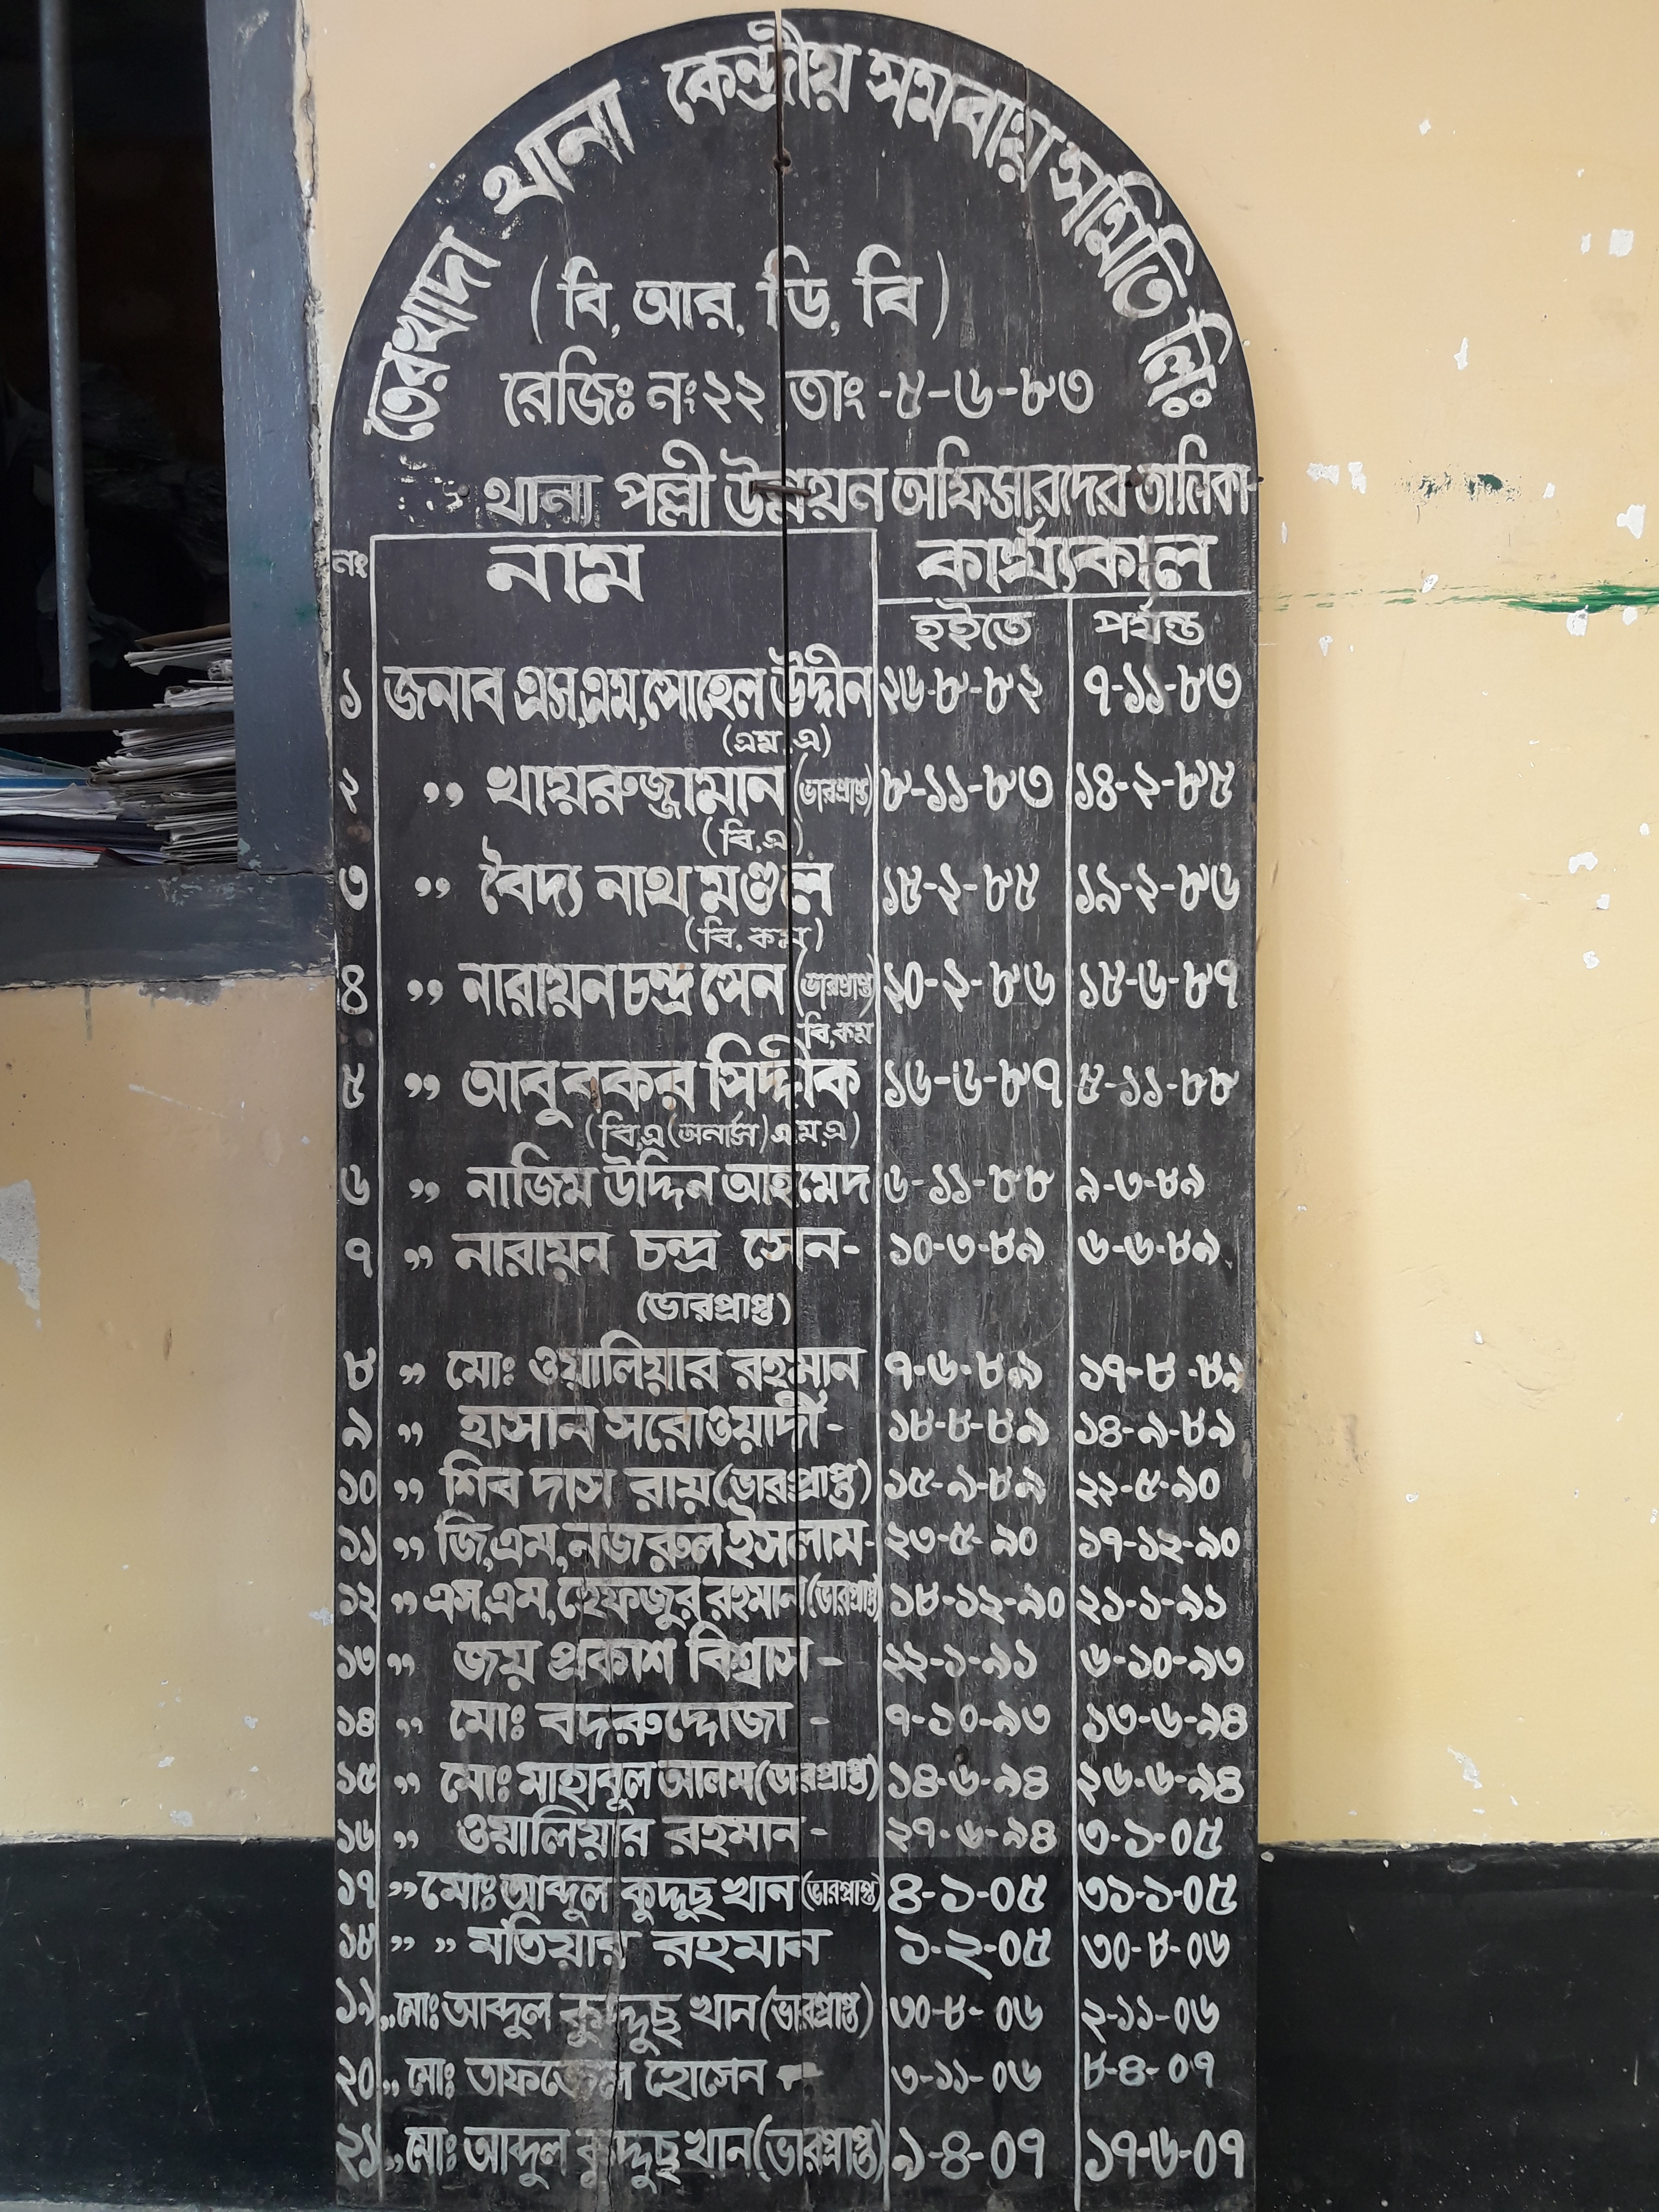 তেরখাদা থানা কেন্দ্রীয় সমবায় সমিতি লিঃ
(বি, আর, ডি, বি)
রেজিঃ নং ২২ তাং -৫-৬-৮৩
থানা পল্লী উন্নয়ন অফিসারদের তালিকা-
নং নাম কার্য্যকাল
হইতে পর্যন্ত
১ জনাব এস,এম,সোহেল উদ্দীন ২৬-৮-৮২ ৭-১১-৮৩
(এম,এ)
২ ,, খায়রুজ্জামান (ভারপ্রাপ্ত) ৮-১১-৮৩ ১৪-২-৮৫
(বি,এ)
৩ ,, বৈদ্য নাথ মণ্ডল ১৫-২-৮৫ ১৯-২-৮৬
(বি. কম)
৪ ,, নারায়ন চন্দ্র সেন (ভারপ্রাপ্ত) ২০-২-৮৬ ১৫-৬-৮৭
বি,কম
৫ ,, আবুবকর সিদ্দীক ১৬-৬-৮৭ ৫-১১-৮৮
(বি,এ(অনার্স)এম,এ)
৬ ,, নাজিম উদ্দিন আহমেদ ৬-১১-৮৮ ৯-৩-৮৯
৭ ,, নারায়ন চন্দ্র সেন- ১০-৩-৮৯ ৬-৬-৮৯
(ভারপ্রাপ্ত)
৮ ,, মোঃ ওয়ালিয়ার রহমান ৭-৬-৮৯ ১৭-৮-৮৯
৯ ,, হাসান সরোওয়ার্দী- ১৮-৮-৮৯ ১৪-৯-৮৯
১০ ,, শিব দাস রায়(ভারপ্রাপ্ত) ১৫-৯-৮৯ ২২-৫-৯০
১১ ,, জি,এম,নজরুল ইসলাম- ২৩-৫-৯০ ১৭-১২-৯০
১২ ,, এস,এম,হেফজুর রহমান(ভারপ্রাপ্ত) ১৮-১২-৯০ ২১-১-৯১
১৩ ,, জয় প্রকাশ বিশ্বাস - ২২-১-৯১ ৬-১০-৯৩
১৪ ,, মোঃ বদরুদ্দোজা - ৭-১০-৯৩ ১৩-৬-৯৪
১৫ ,, মোঃ মাহাবুল আলম(ভারপ্রাপ্ত) ১৪-৬-৯৪ ২৬-৬-৯৪
১৬ ,, ওয়ালিয়ার রহমান - ২৭-৬-৯৪ ৩-১-০৫
১৭ ,, মোঃ আব্দুল কুদ্দুছ খান (ভারপ্রাপ্ত) ৪-১-০৫ ৩১-১-০৫
১৮ ,, ,, মতিয়ার রহমান ১-২-০৫ ৩০-৮-০৬
১৯ ,, মোঃ আব্দুল কুদ্দুছ খান (ভারপ্রাপ্ত) ৩০-৮-০৬ ২-১১-০৬
২০ ,, মোঃ তাফজ্জেল হোসেন - ৩-১১-০৬ ৮-৪-০৭
২১ ,, মোঃ আব্দুল কুদ্দুছ খান (ভারপ্রাপ্ত) ৯-৪-০৭ ১৭-৬-০৭